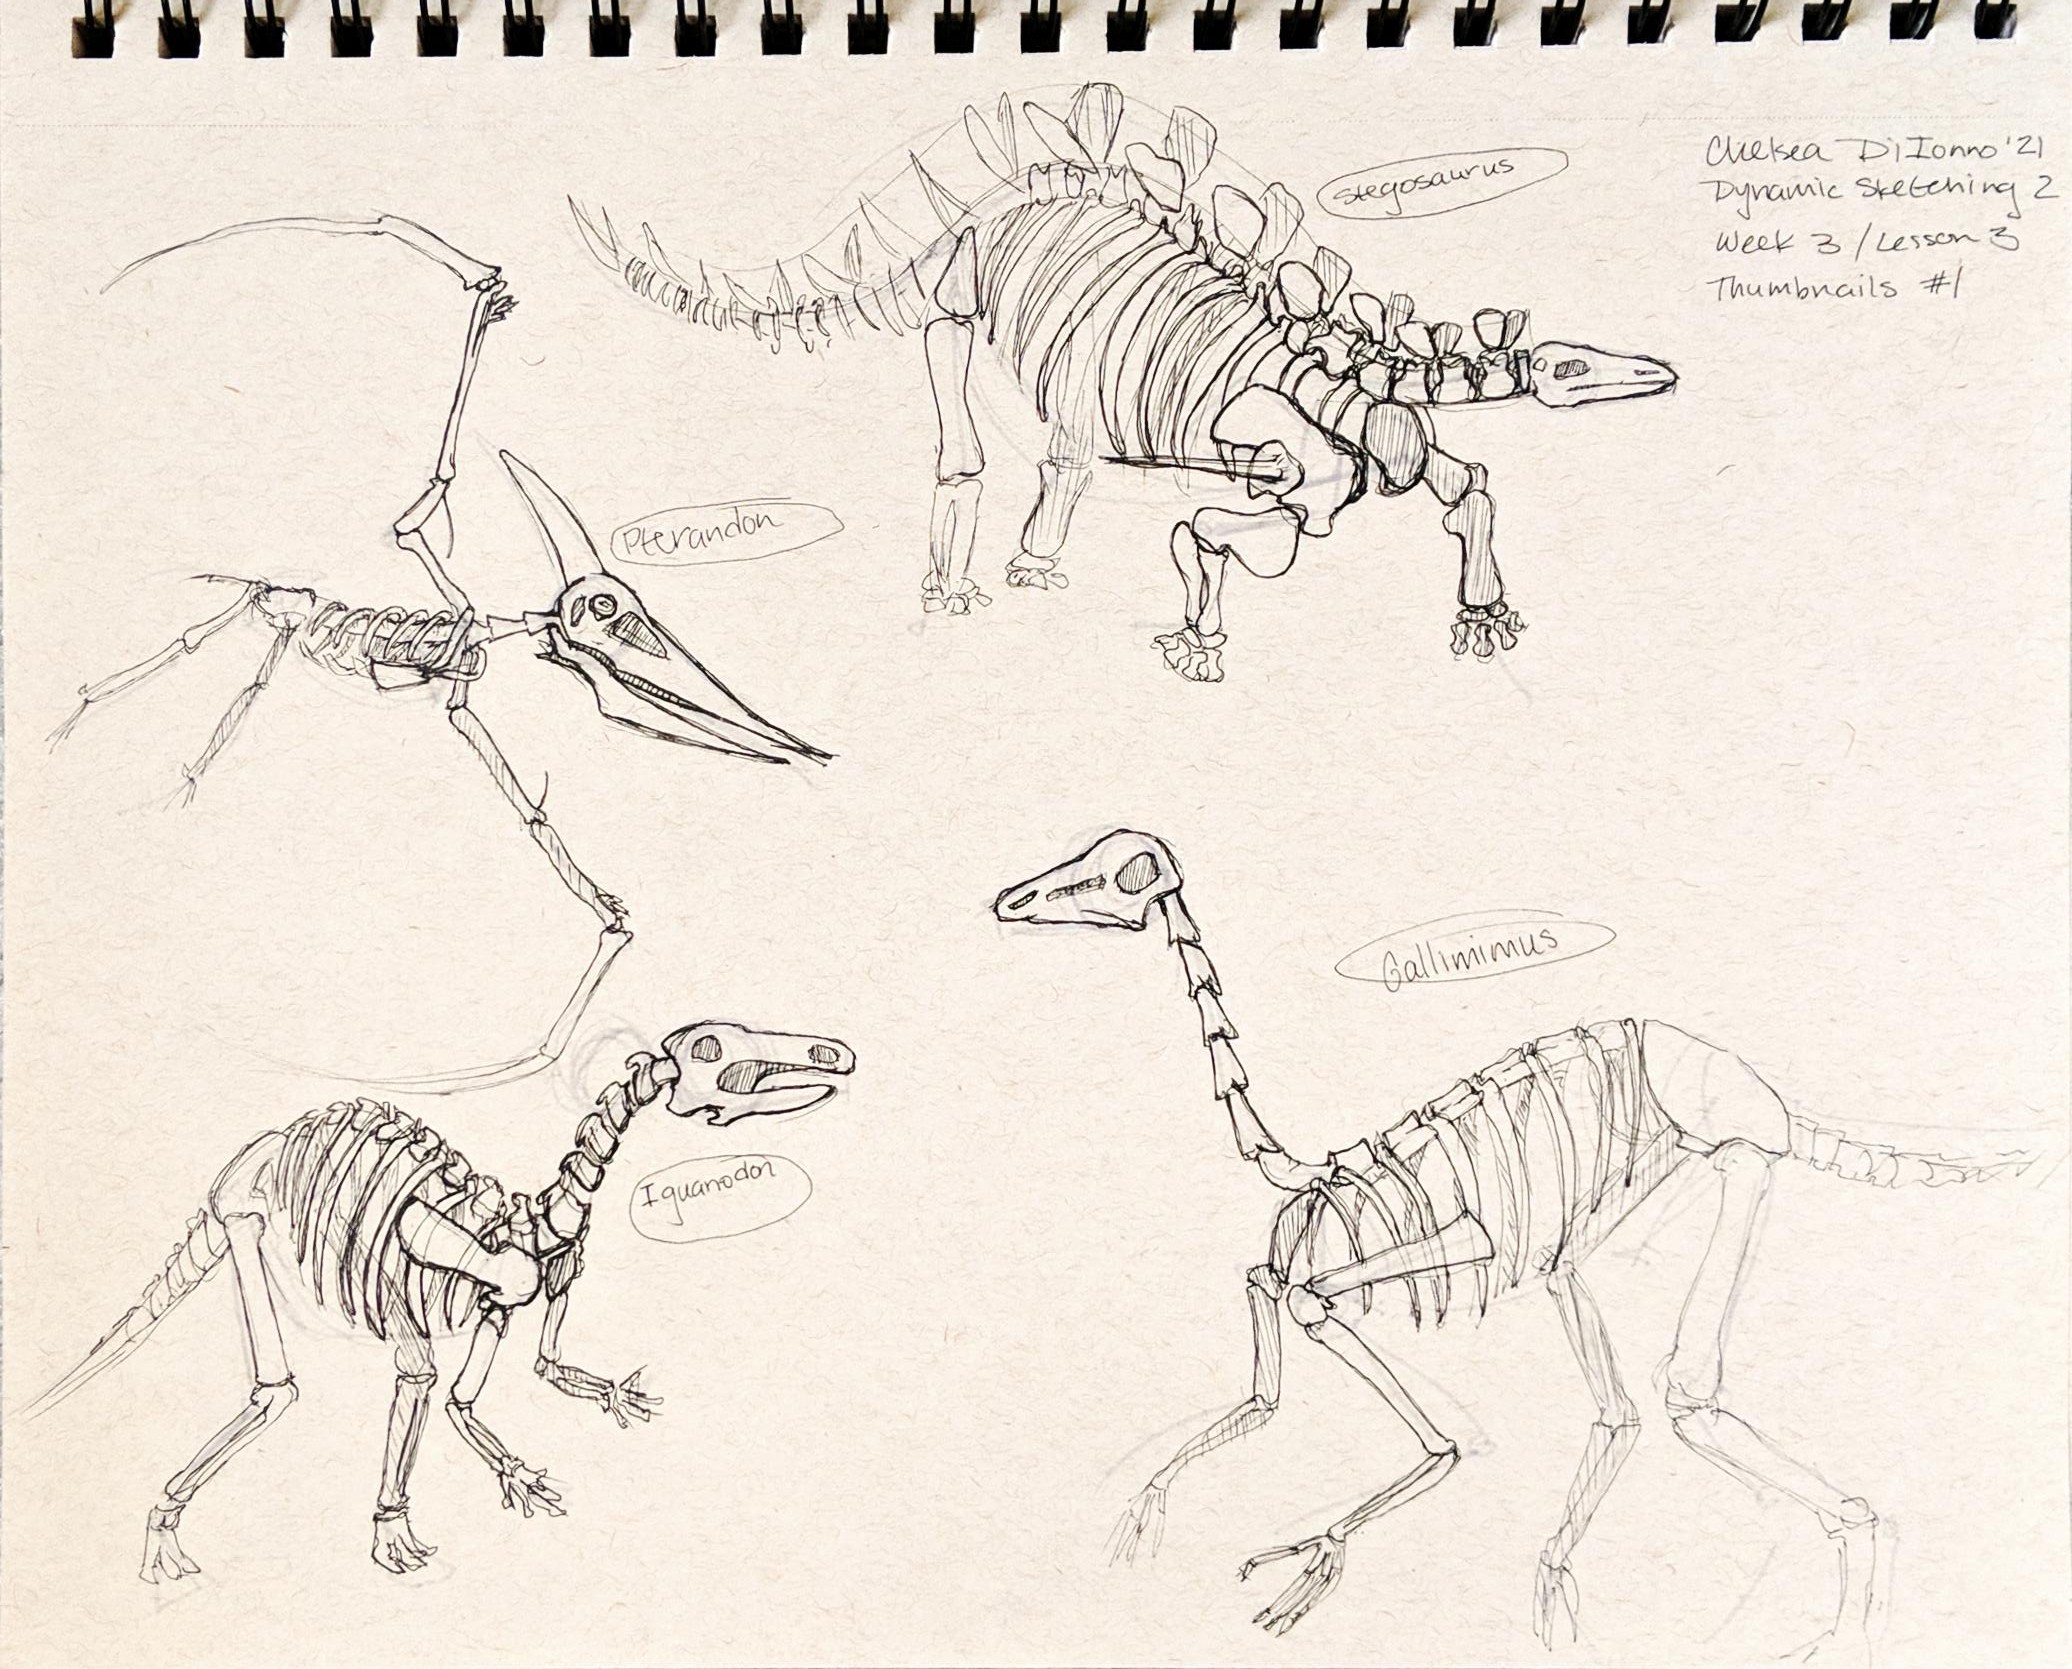 Chelsea DiIonno '21
Dynamic Sketching 2
Week 3 / Lesson 3
Thumbnails #1
Stegosaurus
Pterandon
Gallimimus
Iguanodon